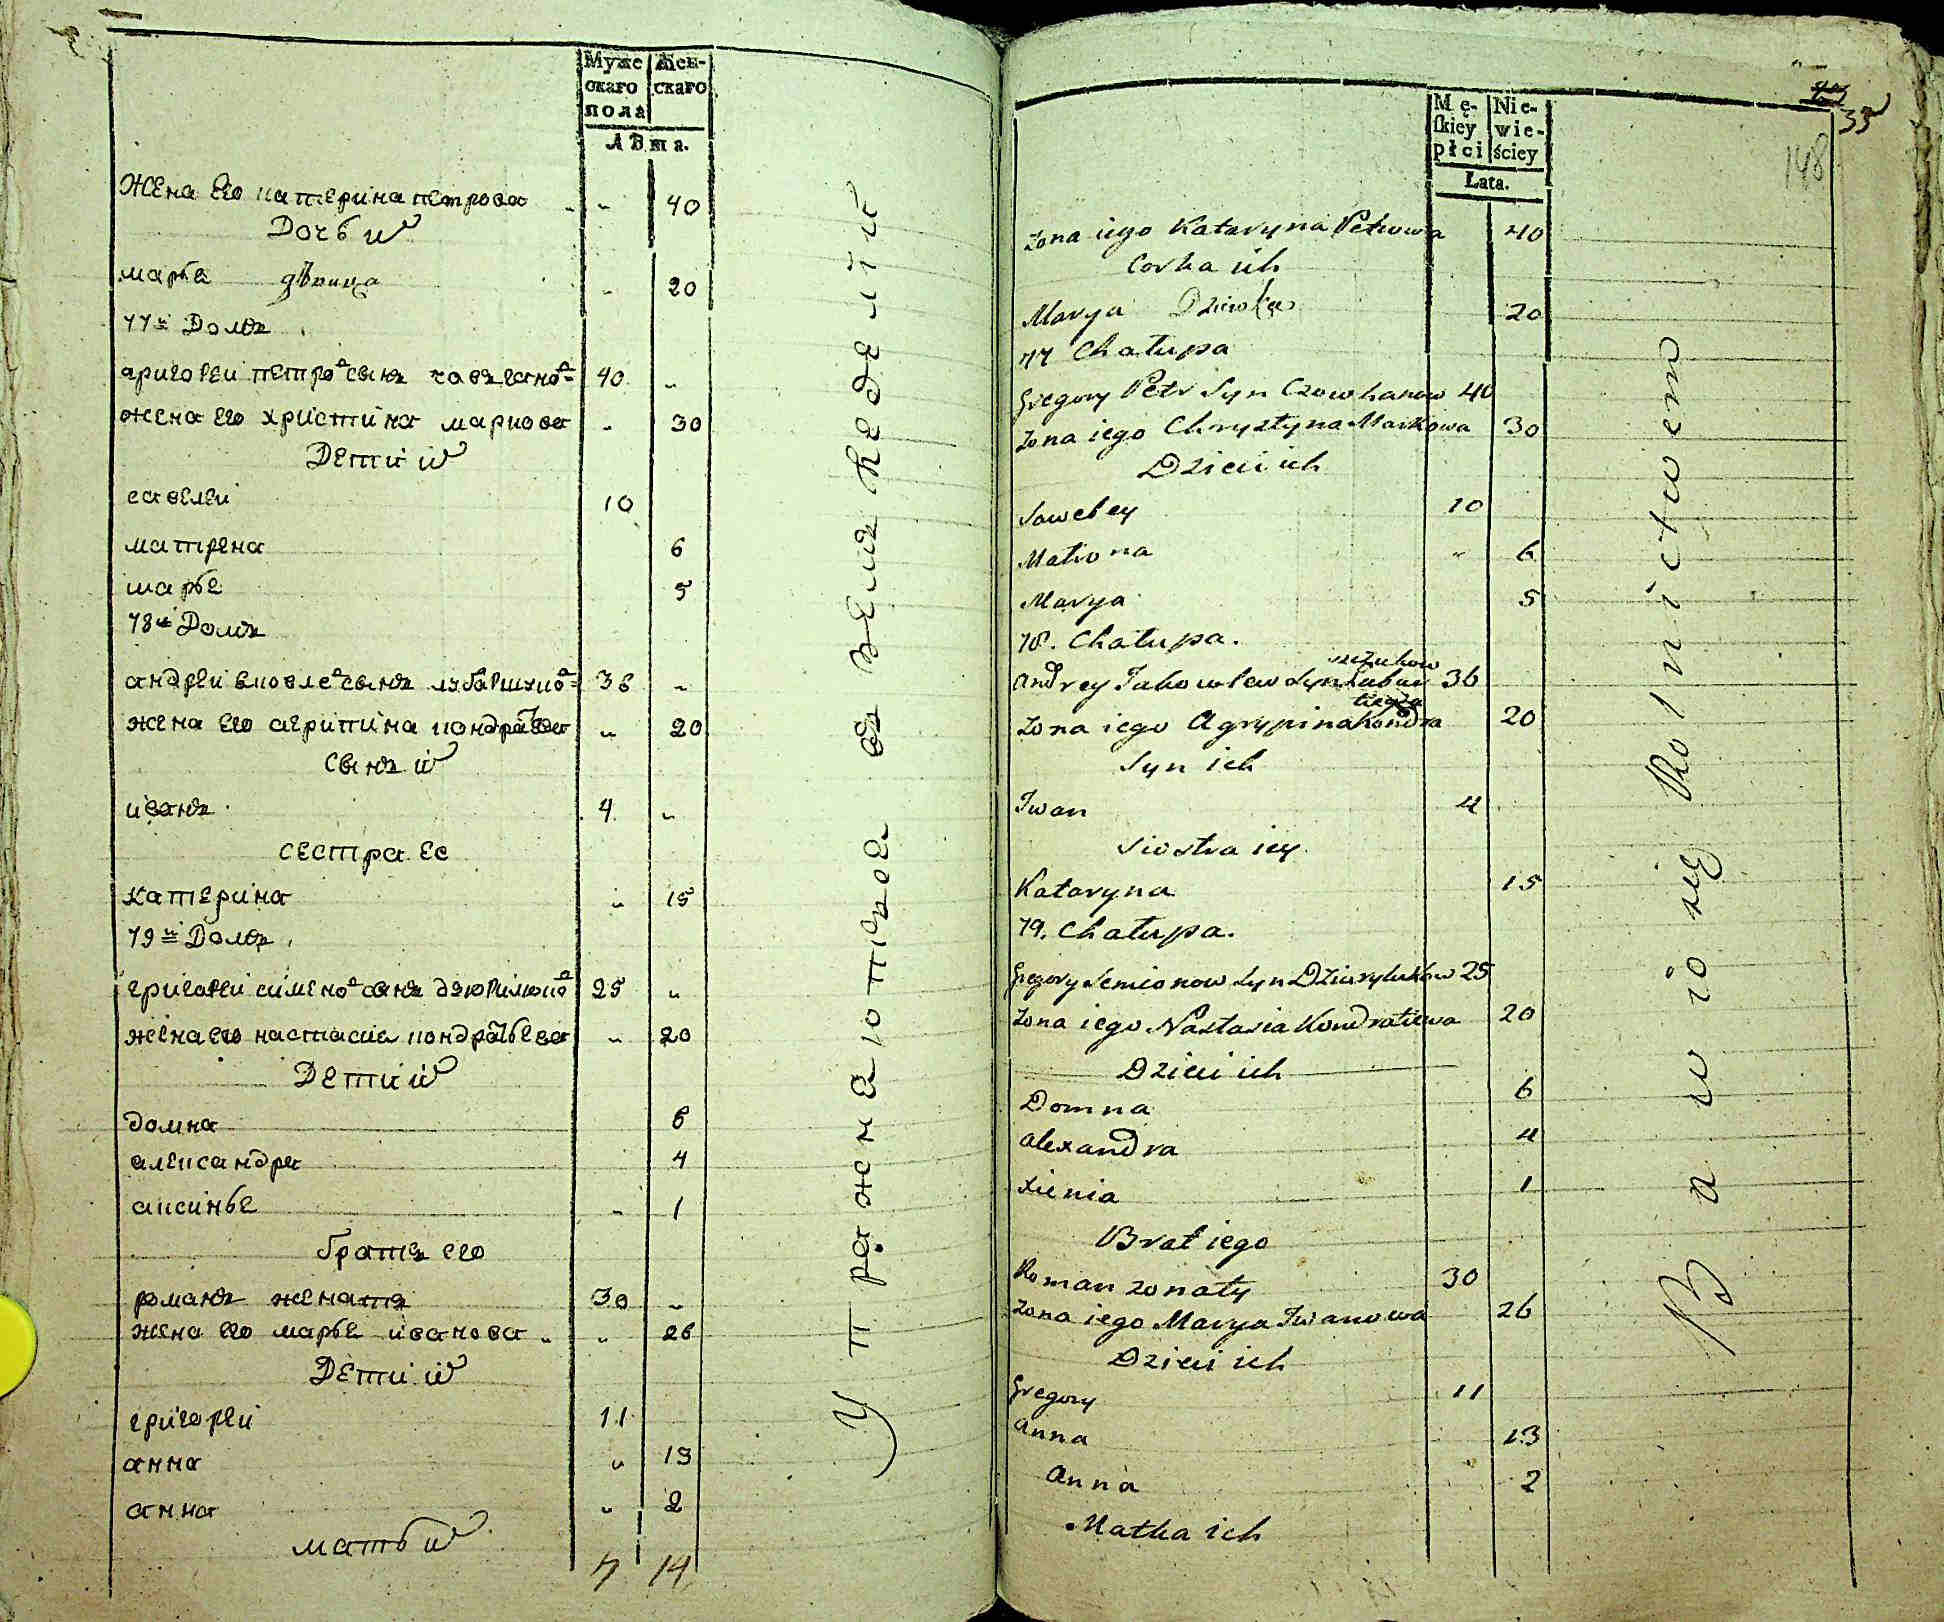 Муже
скаго
пола
Жен-
скаго
Лѣта.
Жена его катерина петрова „ 40
Дочь их
марья дѣвица „ 20
77й Домъ
григореи петров сынъ 40 „
жена его христина маркова „ 30
Дети их
савелеи 10
матрена 6
марья 5
78й Домъ
андреи яковлев сынъ 36 „
жена его агрипина кондратьева „ 20
сынъ их
иванъ 4 „
сестра ее
катерина „ 15
79й Домъ
григореи сименов сынъ 25 „
жена его настасия кондратьева „ 20
Дети их
домна 6
александра 4
аксинья „ 1
братъ его
романъ женатъ 30 „
жена его марья иванова „ 26
Дети их
григореи 11
анна „ 13
анна „ 2
мать их
7 14
Упражняются въ земледелии
Mę-
skiey
płci
Nie-
wie-
ściey
Lata.
33
148
Zona iego Kataryna Petrowa 40
Corka ich
Marya Dziewka 20
77 Chałupa
Gregory Petr Syn Czowhanow 40
Zona iego Chrystyna Markowa 30
Dzieci ich
Saweley 10
Matrona „ 6
Marya 5
78. Chałupa.
Andrey Jakowlew Syn 36
Zona iego Agrypina Kondratiewa 20
Syn ich
Iwan 4
Siostra iey
Kataryna 15
79. Chałupa.
Gregory Semionow Syn 25
Zona iego Nastasia Kondratiewa 20
Dzieci ich
Domna 6
Alexandra 4
Xienia 1
Brat iego
Roman zonaty 30
Zona iego Marya Iwanowa 26
Dzieci ich
Gregory 11
Anna 13
Anna 2
Matka ich
Bawią się Rolnictwem